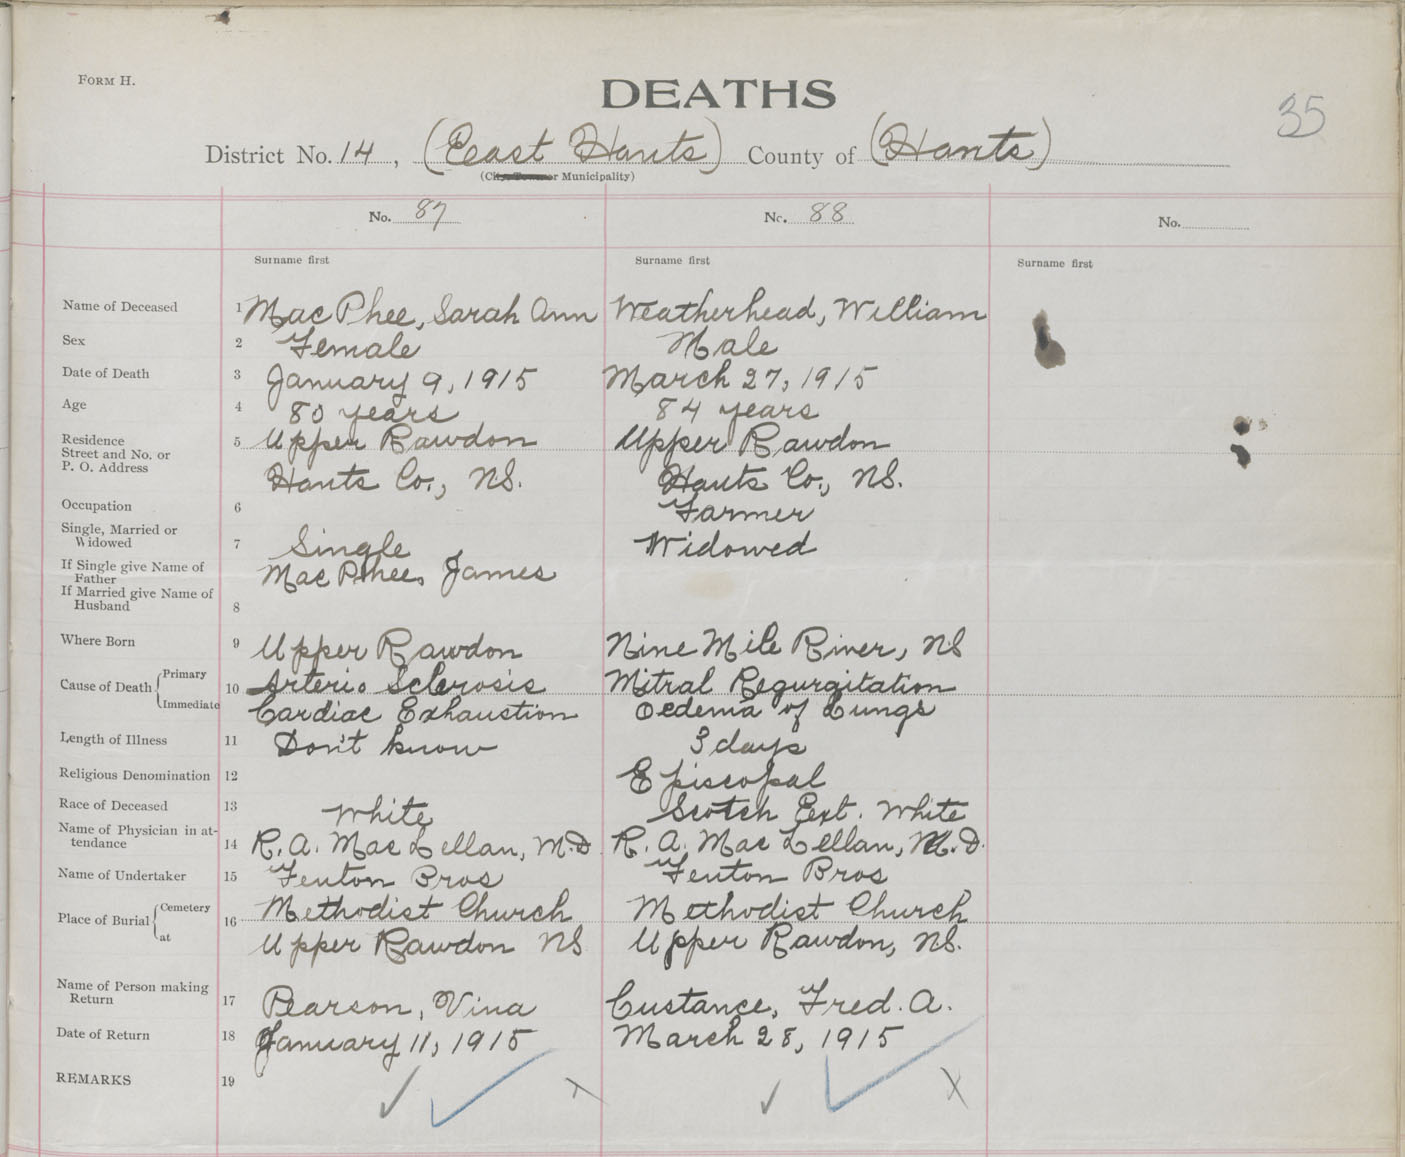 FORM H.
DEATHS
35
District No. 14, (East Hants) County of (Hants)
(City, Town or Municipality)
No. 87 No. 88 No.
Surname first Surname first Surname first
Name of Deceased 1 MacPhee, Sarah Ann Weatherhead, William
Sex 2 Female Male
Date of Death 3 January 9, 1915 March 27, 1915
Age 4 80 years 84 years
Residence 5 Upper Rawdon Upper Rawdon
Street and No. or
P. O. Address Hants Co., NS. Hants Co., NS.
Occupation 6 Farmer
Single, Married or
Widowed 7 Single Widowed
If Single give Name of
Father MacPhee, James
If Married give Name of
Husband 8
Where Born 9 Upper Rawdon Nine Mile River, NS
Cause of Death { Primary 10 Arterio Sclerosis Mitral Regurgitation
Immediate Cardiac Exhaustion Oedema of Lungs
Length of Illness 11 Don't know 3 days
Religious Denomination 12 Episcopal
Race of Deceased 13 White Scotch Ext. White
Name of Physician in at-
tendance 14 R. A. MacLellan, M.D. R. A. MacLellan, M.D.
Name of Undertaker 15 Fenton Bros Fenton Bros
Place of Burial { Cemetery 16 Methodist Church Methodist Church
at Upper Rawdon NS Upper Rawdon, NS.
Name of Person making
Return 17 Pearson, Vina Custance, Fred. A.
Date of Return 18 January 11, 1915 March 28, 1915
REMARKS 19